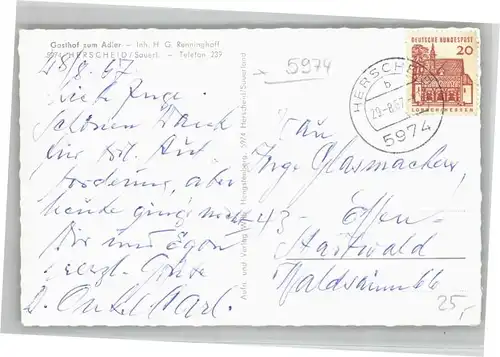 Gasthof zum Adler - Inh. H. G. Renninghoff
5974 HERSCHEID/Sauerl. - Telefon 239
28/8.67
Liebe Inge.
Schönen Dank
für frl. Auf
forderung, aber
heute ging's nicht
Dir und Egon
herzl. Grüße
D. Onkel Karl.
Aufn. und Verlag Hengstenberg, 5974 Herscheid/Sauerland
5974
DEUTSCHE BUNDESPOST
20
LORSCH HESSEN
HERSCHEID
b
29-8.67
5974
Frau
Inge Glasmacher,
43- Essen-
Stadtwald
Waldsaum 66
25,-